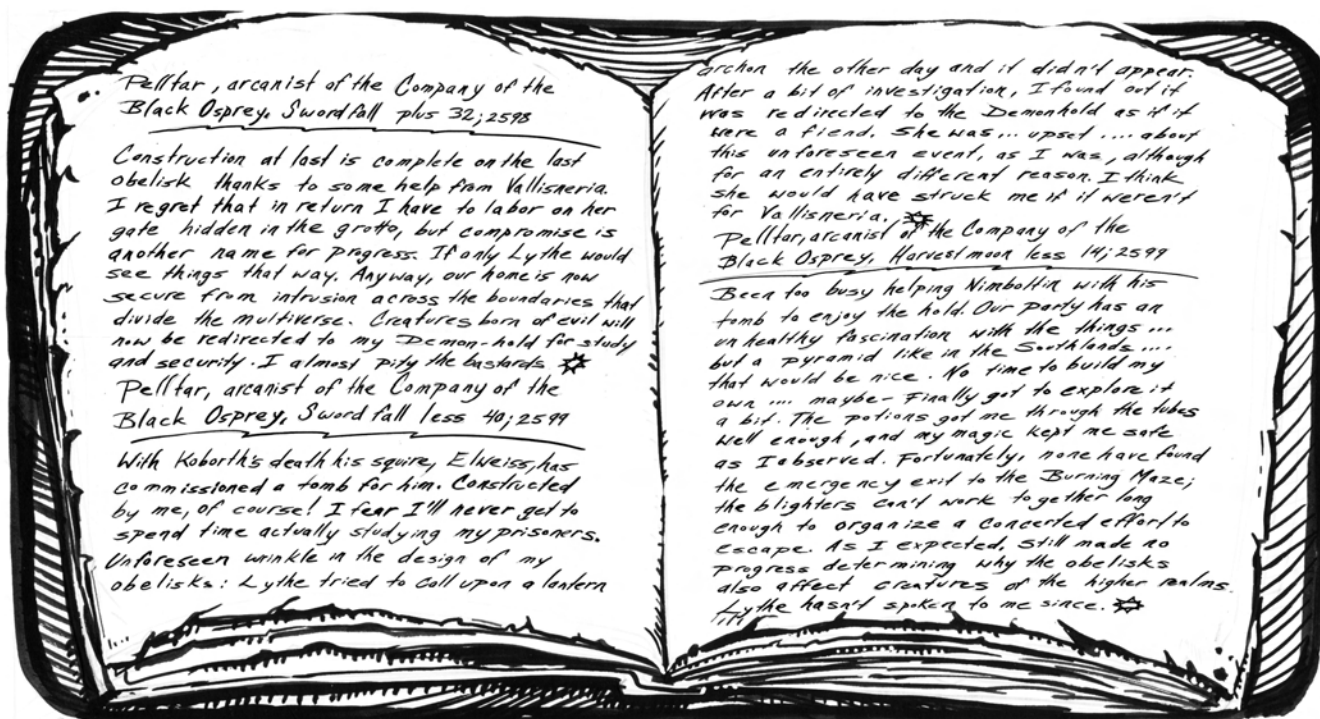 Pelltar, arcanist of the Company of the
Black Osprey, Swordfall plus 32; 2598
Construction at last is complete on the last
obelisk thanks to some help from Vallisneria.
I regret that in return I have to labor on her
gate hidden in the grotto, but compromise is
another name for progress. If only Lythe would
see things that way. Anyway, our home is now
secure from intrusion across the boundaries that
divide the multiverse. Creatures born of evil will
now be redirected to my Demon-hold for study
and security. I almost pity the bastards
Pelltar, arcanist of the Company of the
Black Osprey, Swordfall less 40; 2599
With Koborth's death his squire, Elweiss, has
commissioned a tomb for him. Constructed
by me, of course! I fear I'll never get to
spend time actually studying my prisoners.
Unforeseen wrinkle in the design of my
obelisks: Lythe tried to call upon a lantern
archon the other day and it didn't appear.
After a bit of investigation, I found out it
was redirected to the Demonhold as if it
were a fiend. She was... upset .... about
this unforeseen event, as I was, although
for an entirely different reason. I think
she would have struck me if it weren't
for Vallisneria.
Pelltar, arcanist of the Company of the
Black Osprey, Harvestmoon less 14; 2599
Been too busy helping Nimboltin with his
tomb to enjoy the hold. Our party has an
unhealthy fascination with the things ...
but a pyramid like in the Southlands ....
that would be nice. No time to build my
own .... maybe- Finally got to explore it
a bit. The potions got me through the tubes
well enough, and my magic kept me safe
as I observed. Fortunately, none have found
the emergency exit to the Burning Maze;
the blighters can't work together long
enough to organize a concerted effort to
escape. As I expected. Still made no
progress determining why the obelisks
also affect creatures of the higher realms.
Lythe hasn't spoken to me since.